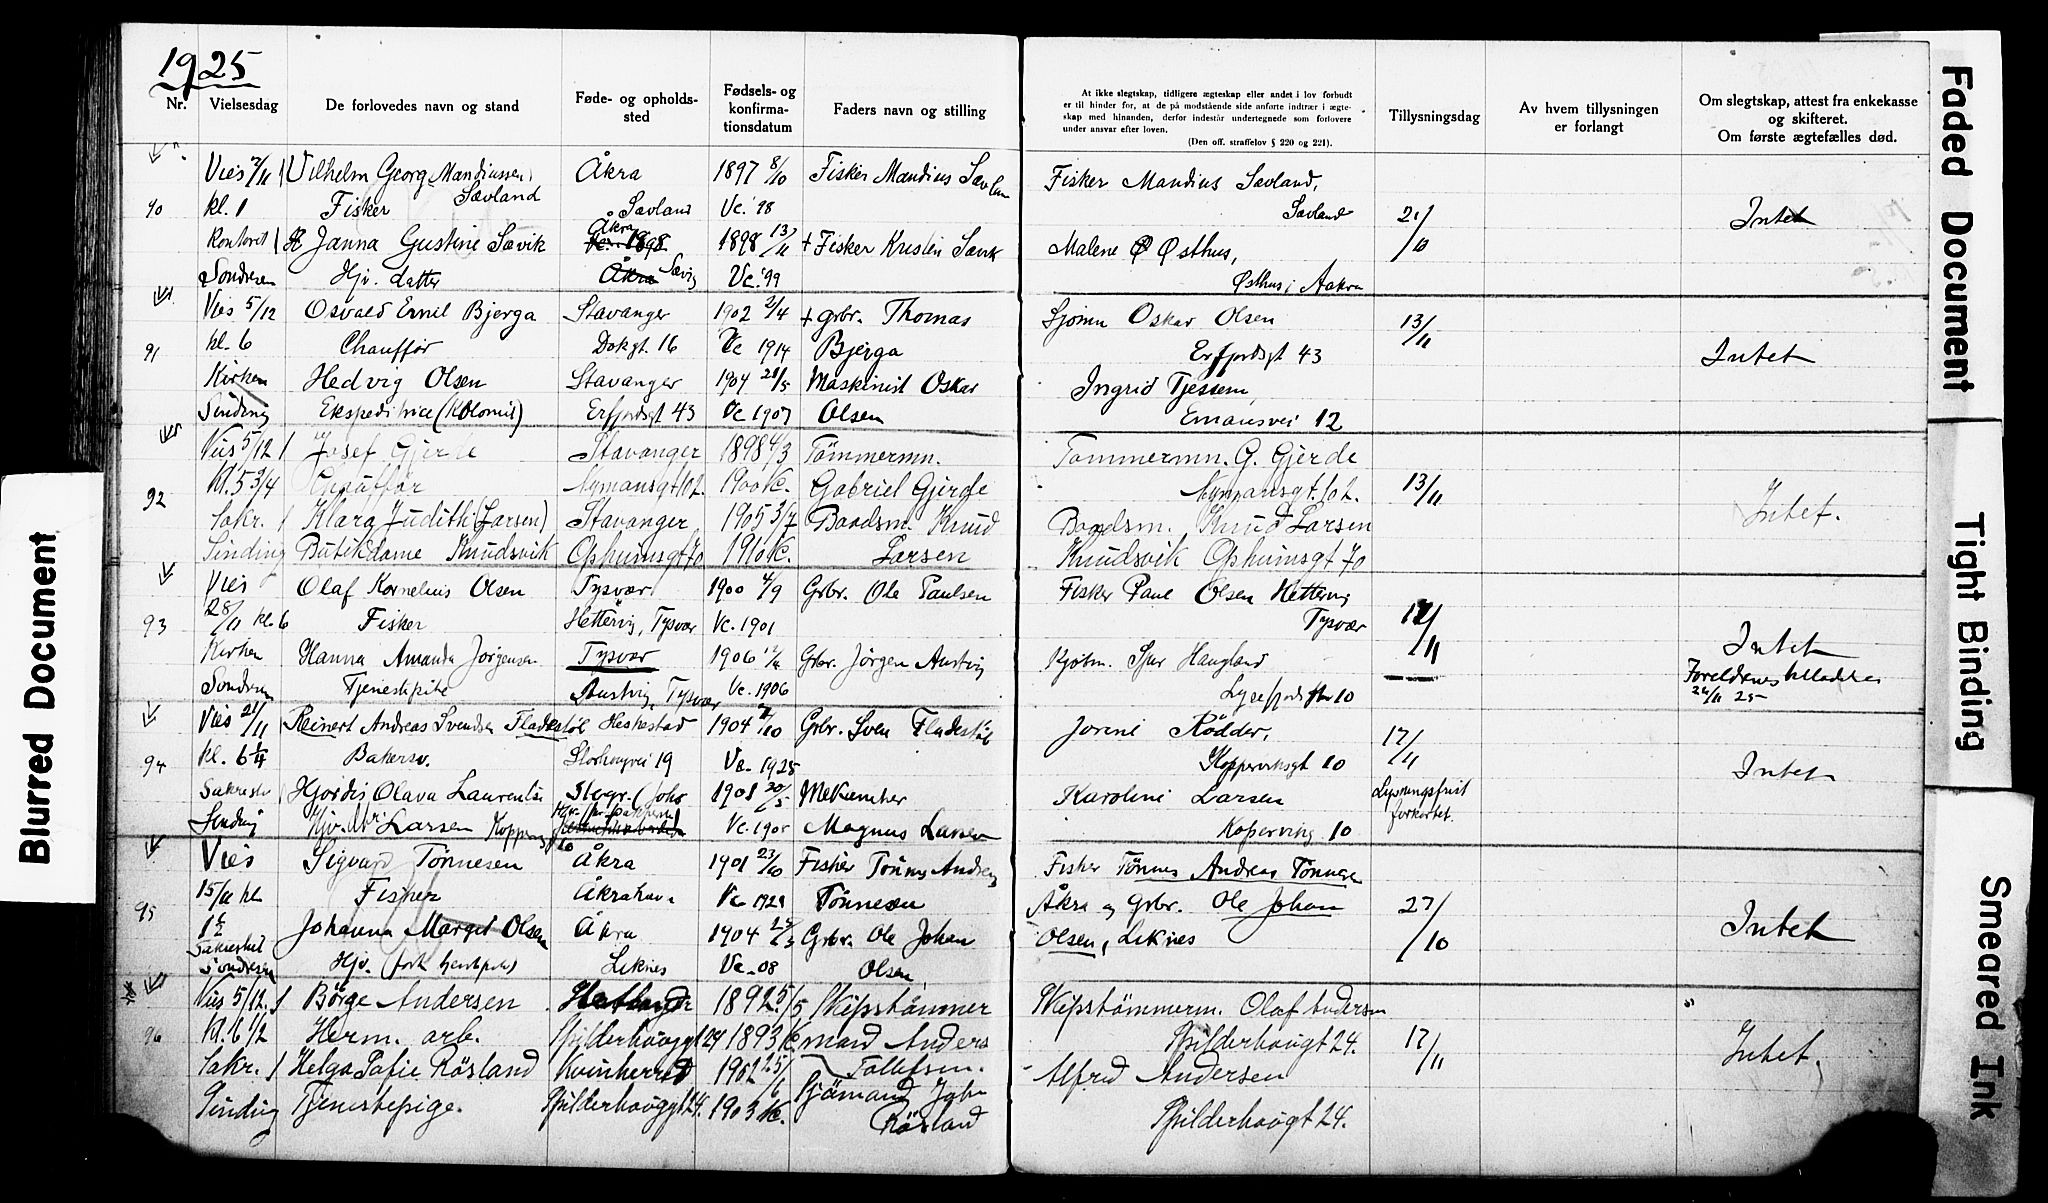 1925
Nr.
Vielsesdag
De forlovedes navn og stand
Føde- og opholds-
sted
Fødsels- og
konfirma-
tionsdatum
Faders navn og stilling
At ikke slegtskap, tidligere ægteskap eller andet i lov forbudt
er til hinder for, at de på modstående side anførte indtrær i ægte-
skap med hinanden, derfor indestår undertegnede som forlovere
under ansvar efter loven.
(Den off. straffelov § 220 og 221).
Tillysningsdag
Av hvem tillysningen
er forlangt
Om slegtskap, attest fra enkekasse
og skifteret.
Om første ægtefælles død.
Vies 7/11 Vilhelm Georg Mandiussen Åkra 1897 8/10 Fisker Mandius Sævland Fisker Mandius Sævland,
90 kl. 1 Fisker Sævland Sævland Vc. '98 Sævland 21/10 Intet
Kontoret Janna Gustine Sævik Åkra 1898 13/11 + Fisker Kristen Sævik Malene Østhus,
Sondresen Hjv. datter Sævig Vc. '99 Østhus i Aakra
Vies 5/12 Osvald Emil Bjerga Stavanger 1902 2/4 + grbr. Thomas Sjømn Oskar Olsen 13/11
91 kl. 6 Chauffør Dokgt. 16 Vc 1914 Bjerga Erfjordsgt 43 Intet
Kirken Hedvig Olsen Stavanger 1904 28/5 Maskinist Oskar Ingrid Tjessem,
Sinding Ekspeditrice Erfjordsgt 43 Vc 1907 Olsen 12
Vies 5/12 Josef Gjerde Stavanger 1898 4/3 Tömmermn. Tömmermn. G. Gjerde
92 Kl. 5 3/4 Chauffør Nymansgt 102. 1900 Vc. Gabriel Gjerde Nymansgt. 102. 13/11 Intet.
Sakr. Klara Judith (Larsen) Stavanger 1905 3/7 Baadsm. Knud Baadsm. Knud Larsen
Sinding Butikdame Knudsvik Opheimsgt 70 1910 Vc. Larsen Knudsvik Opheimsgt 70
Vies Olaf Kornelius Olsen Tysvær 1900 4/9 Grbr. Ole Paulsen Fisker Paul Olsen Hettervig
93 28/11 kl. 6 Fisker Hettervig, Tysvær Vc. 1901 Tysvær 12/11 Intet
Kirken Hanna Amanda Jørgensen Tysvær 1906 Grbr. Jørgen Austvig Kjøbm. Haugland
Sondresen Tjenestpike Austvig, Tysvær Vc. 1906 10 Foreldrenes tilladelse
25
Vies 21/11 Reinert Andreas Svendsen Fladestøl Heskestad 1904 7/10 Grbr. Sven Fladestøl Jorine Rödder, 17/11
94 kl. 6 1/4 Bakersv. Storhougvei 19 Vc. 1925 Kopperviksgt 10 Intet
Sakresti Hjørdis Olava Laurentse 1901 30/5 Mekaniker Karoline Larsen Lysningsfrist
Sinding Hjv. dtr Larsen Magnus Larsen Koperviksg 10 forkortet.
Vies Sigvard Tønnesen Åkra 1901 23/10 Fisker Tønnes Andreas Fisker Tønnes Andreas Tønnesen
95 15/11 kl Fisker Åkrahavn Tønnesen Åkra og Grbr. Ole Johan 27/10 Intet
1 1/2 Johanna Margit Olsen Åkra 1904 Grbr. Ole Johan Olsen, Liknes
Sakrestiet Sondresen Hjv. Liknes Vc - 08 Olsen
Vies 5/12. Börge Andersen 1892 5/5 Skipstömmer Skipstömmerm. Olaf Andersen
96 Kl. 6 1/2 Herm. arb. Spilderhaugsgt 24 1893 Vc mand Anders Spilderhaugt 24. 17/11 Intet.
Sakr. Helga Sofie Røsland Kvinherred 1902 25/6 Tollefsen. Alfred Andersen
Sinding Tjenestepige. Spilderhauggt 24. 1903 Vc. Sjömand John Røsland Spilderhaugt 24.
Blurred Document
Faded Document
Tight Binding
Smeared Ink